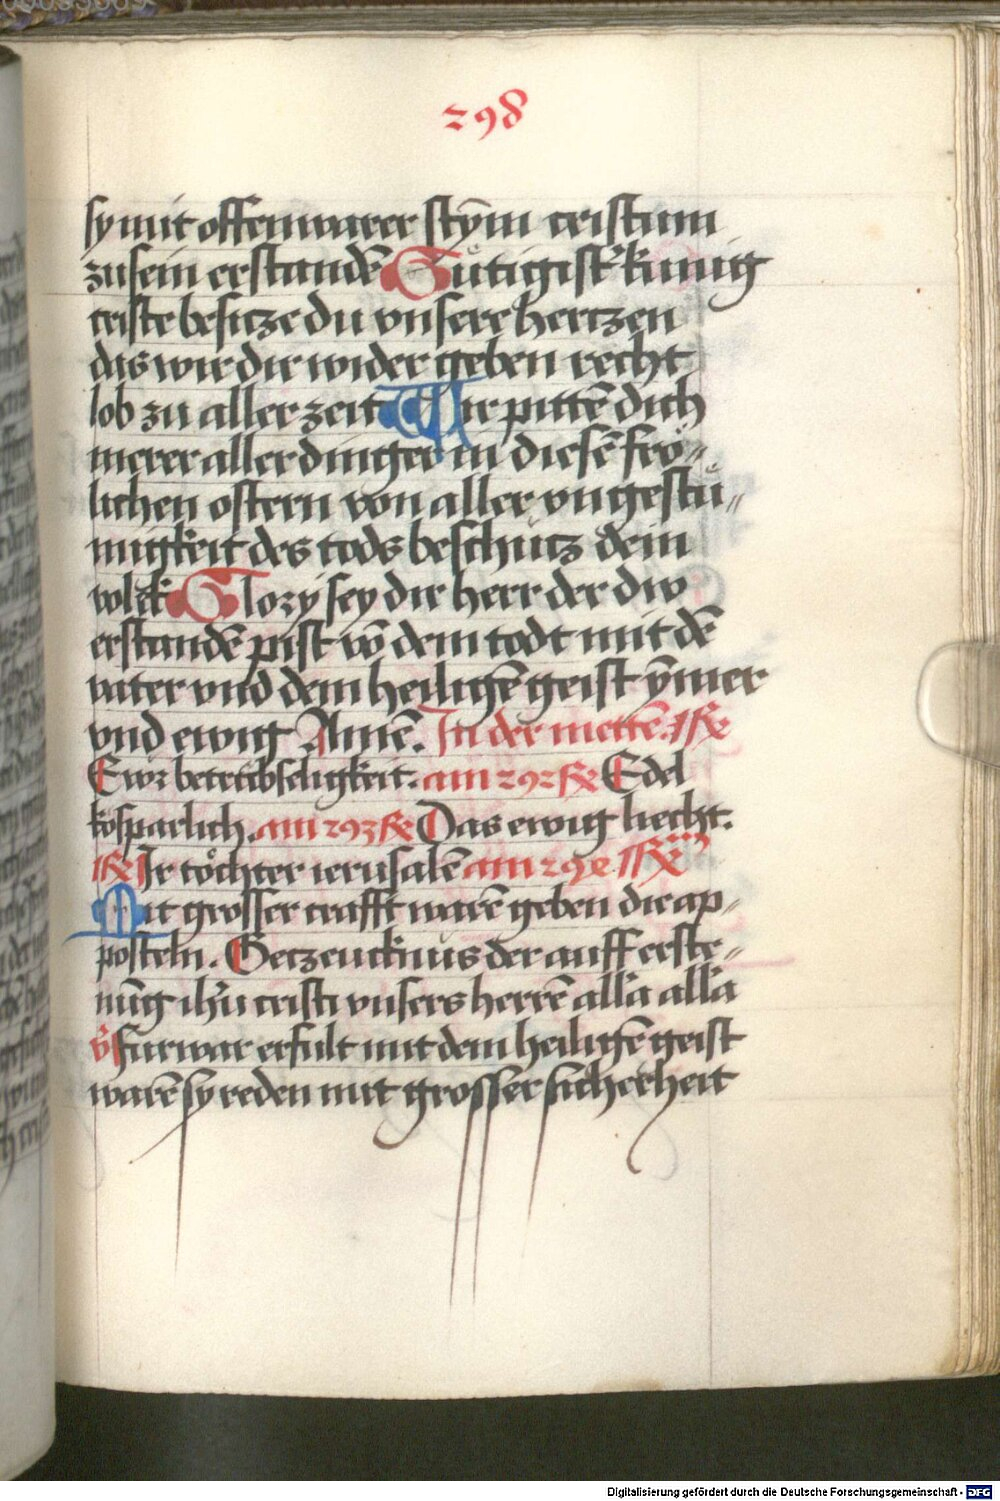 298
sy mit offenwarer stȳm cristum
zu sein erstandē Gütigist' kunig
criste besitze du vnsere hertzen
das wir dir wider geben recht
lob zu aller zeit Wir pittē dich
merer aller dinger in diesē frö-
lichen ostern von aller vngestü-
migkeit des tods beschütz dein
volck Glory sey dir herr der dw
erstandē pist vō dem todt mit dē
vater vnd dem heiligē geist ȳmer
vnd ewig Amē. In der mettē. R
Ewr betrübseligkeit. am 292 R Edel
kosparlich. am 293 R Das ewig liecht.
R Ir töchter ierusalē am 29 R
Mit grosser crafft warē geben die ap-
posteln. Getzeucknus der aufferste-
nūg ih'u cristi vnsers herrē all'a all'a
v' furwar erfult mit dem heiligē geist
warē sy reden mit grosser sicherheit
Digitalisierung gefördert durch die Deutsche Forschungsgemeinschaft - DFG